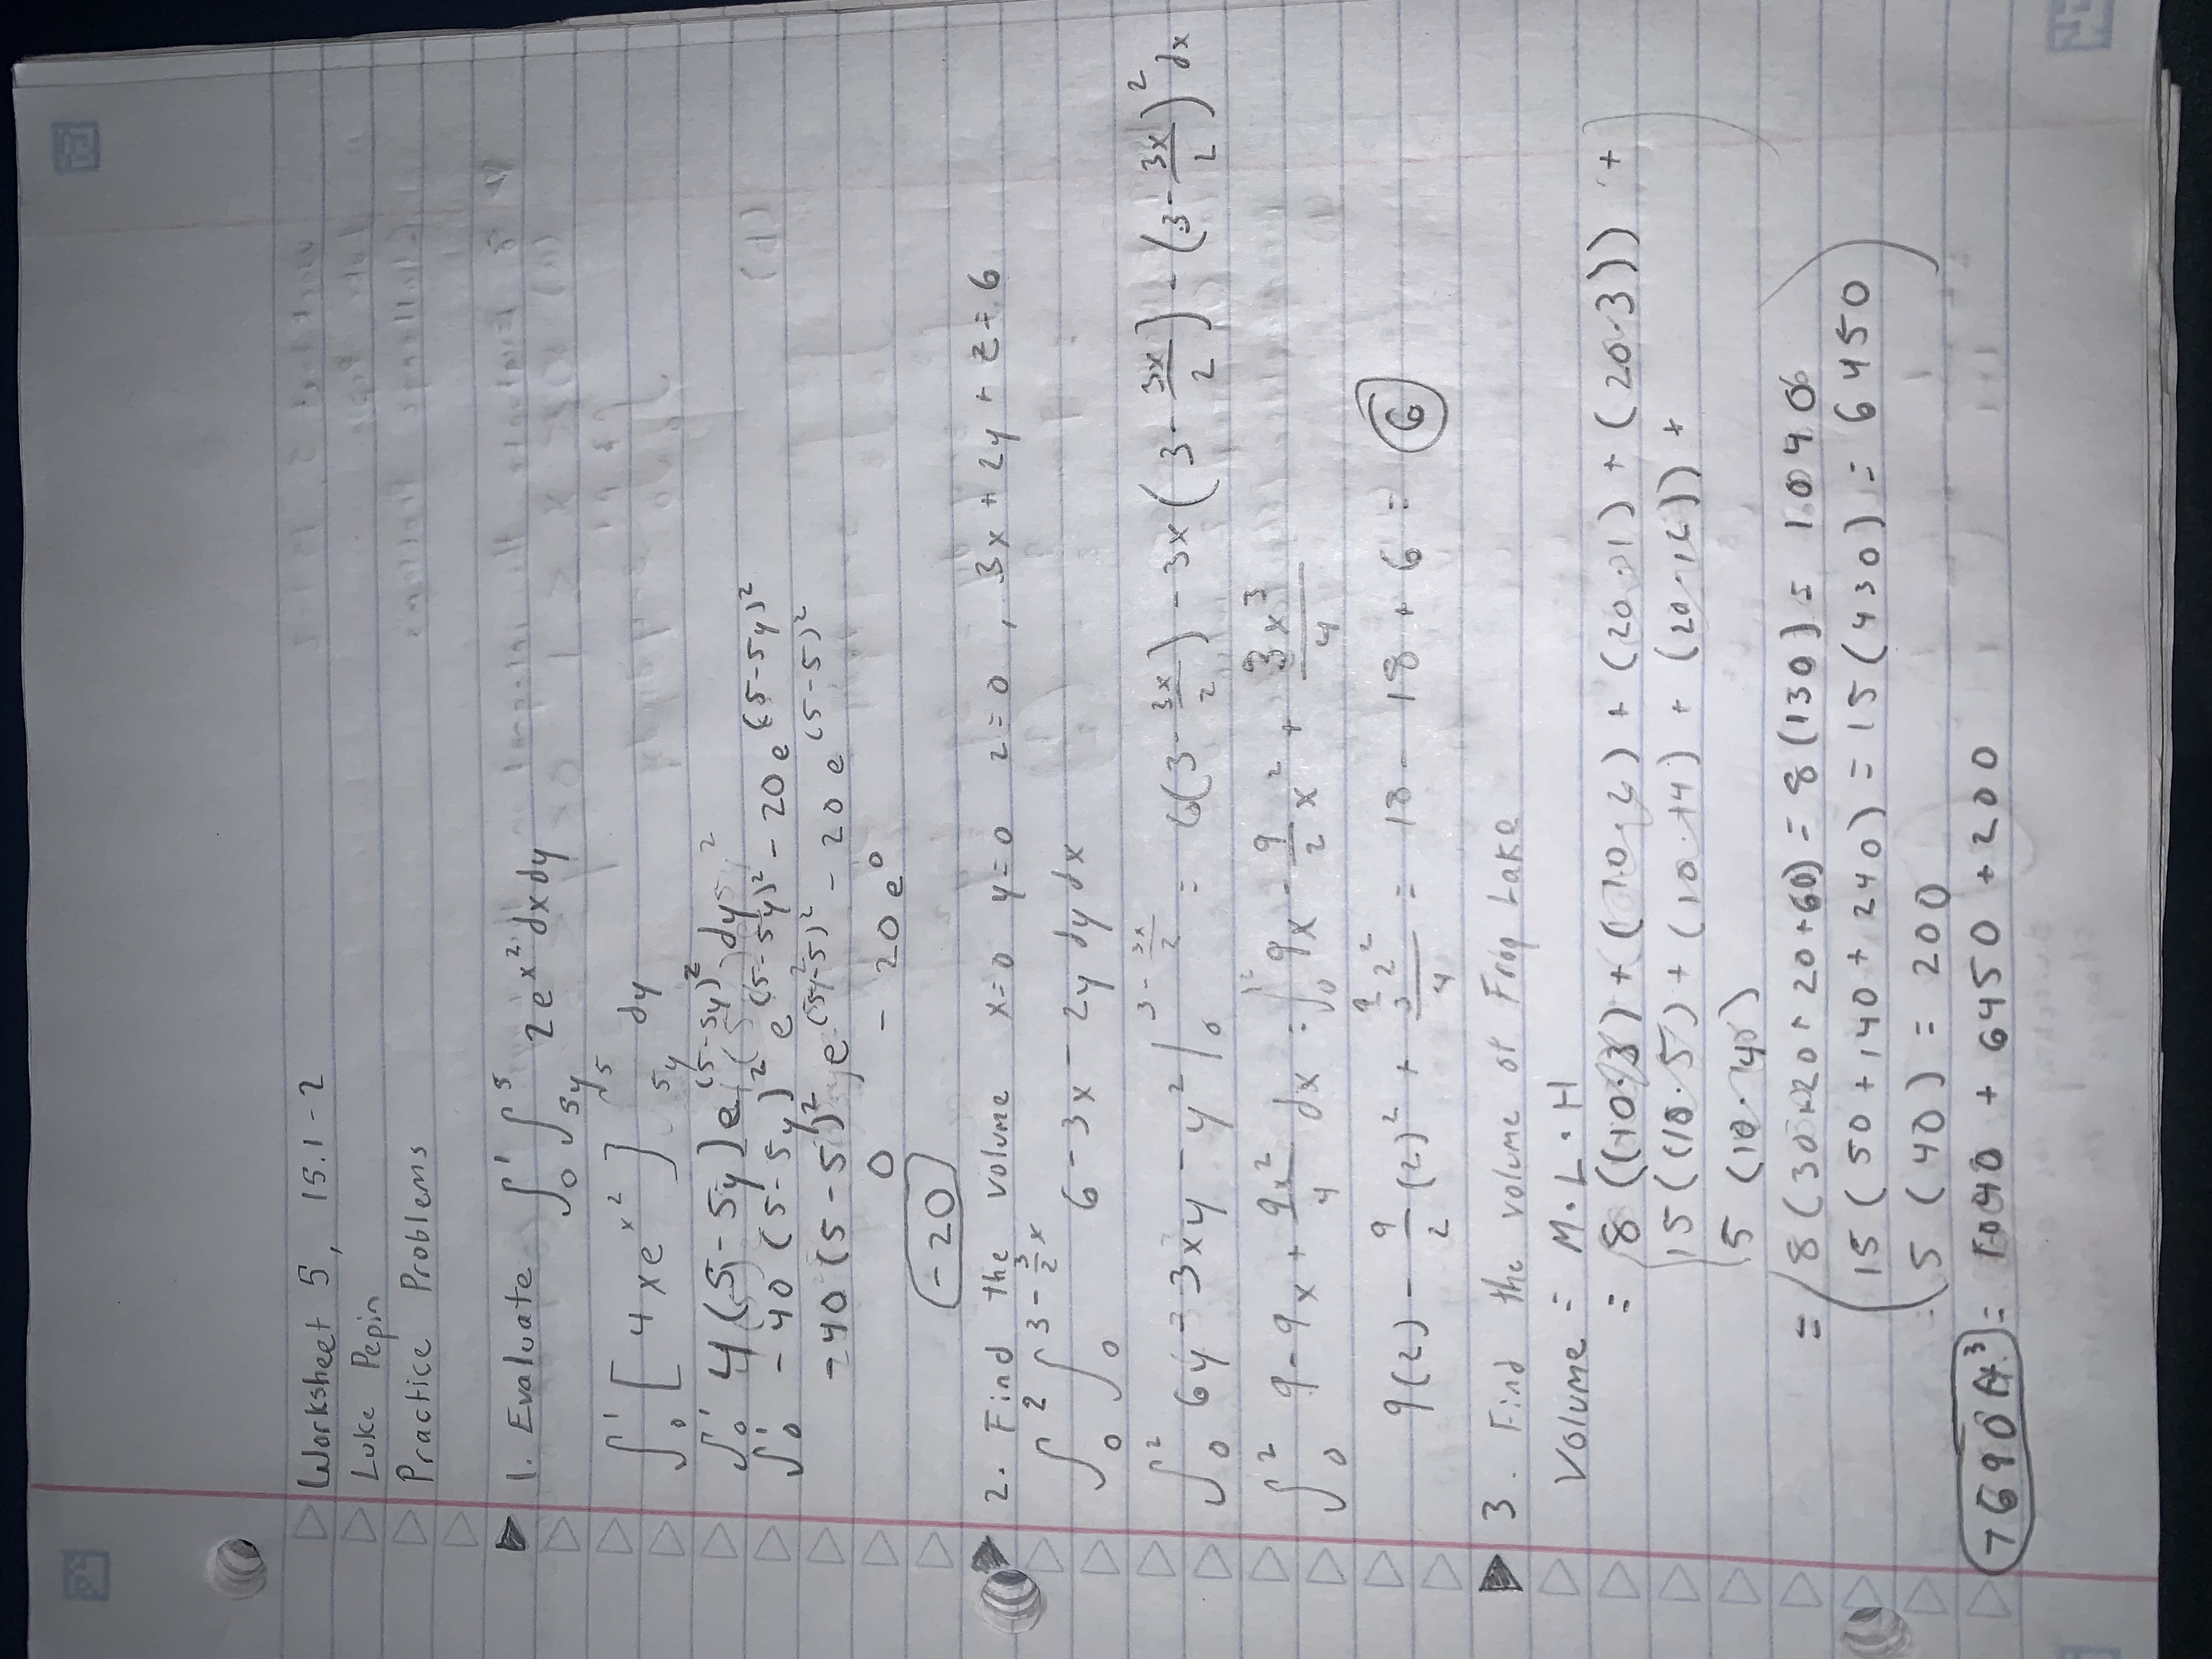 Worksheet 5, 15.1-2
Luke Pepin
Practice Problems
1. Evaluate ∫₀¹ ∫₅ᵧ⁵ 2e^x² dxdy
∫₀¹ [4xe^x²]₅ᵧ⁵ dy
∫₀¹ 4(5-5y)e^(5-5y)² dy
∫₀¹ -40(5-5y)² e^(5-5y)² - 20e^(5-5y)²
-40(5-5)² e^(5-5)² - 20e^(5-5)²
0 - 20e⁰
-20
2. Find the volume x=0 y=0 z=0, 3x+2y+z=6
∫₀² ∫₀^(3-3/2x) 6-3x-2y dydx
∫₀² 6y-3xy-y² |₀^(3-3x/2) = 6(3-3x/2) - 3x(3-3x/2) - (3-3x/2)² dx
∫₀² 9-9x+9x²/4 dx = ∫₀² 9x - 9/2 x² + 3x³/4
9(2) - 9/2 (2)² + = 18 - 18 + 6 = 6
3. Find the volume of Frog Lake
Volume = M·L·H
= 8((10·3)+(10·2)+(20·1)+(20·3)) +
15((10·5)+(10·14)+(20·16)) +
5(10·40)
= 8(30+20+20+60) = 8(130) = 1040
15(50+140+240) = 15(430) = 6450
5(40) = 200
7690 ft³ = 1040 + 6450 + 200